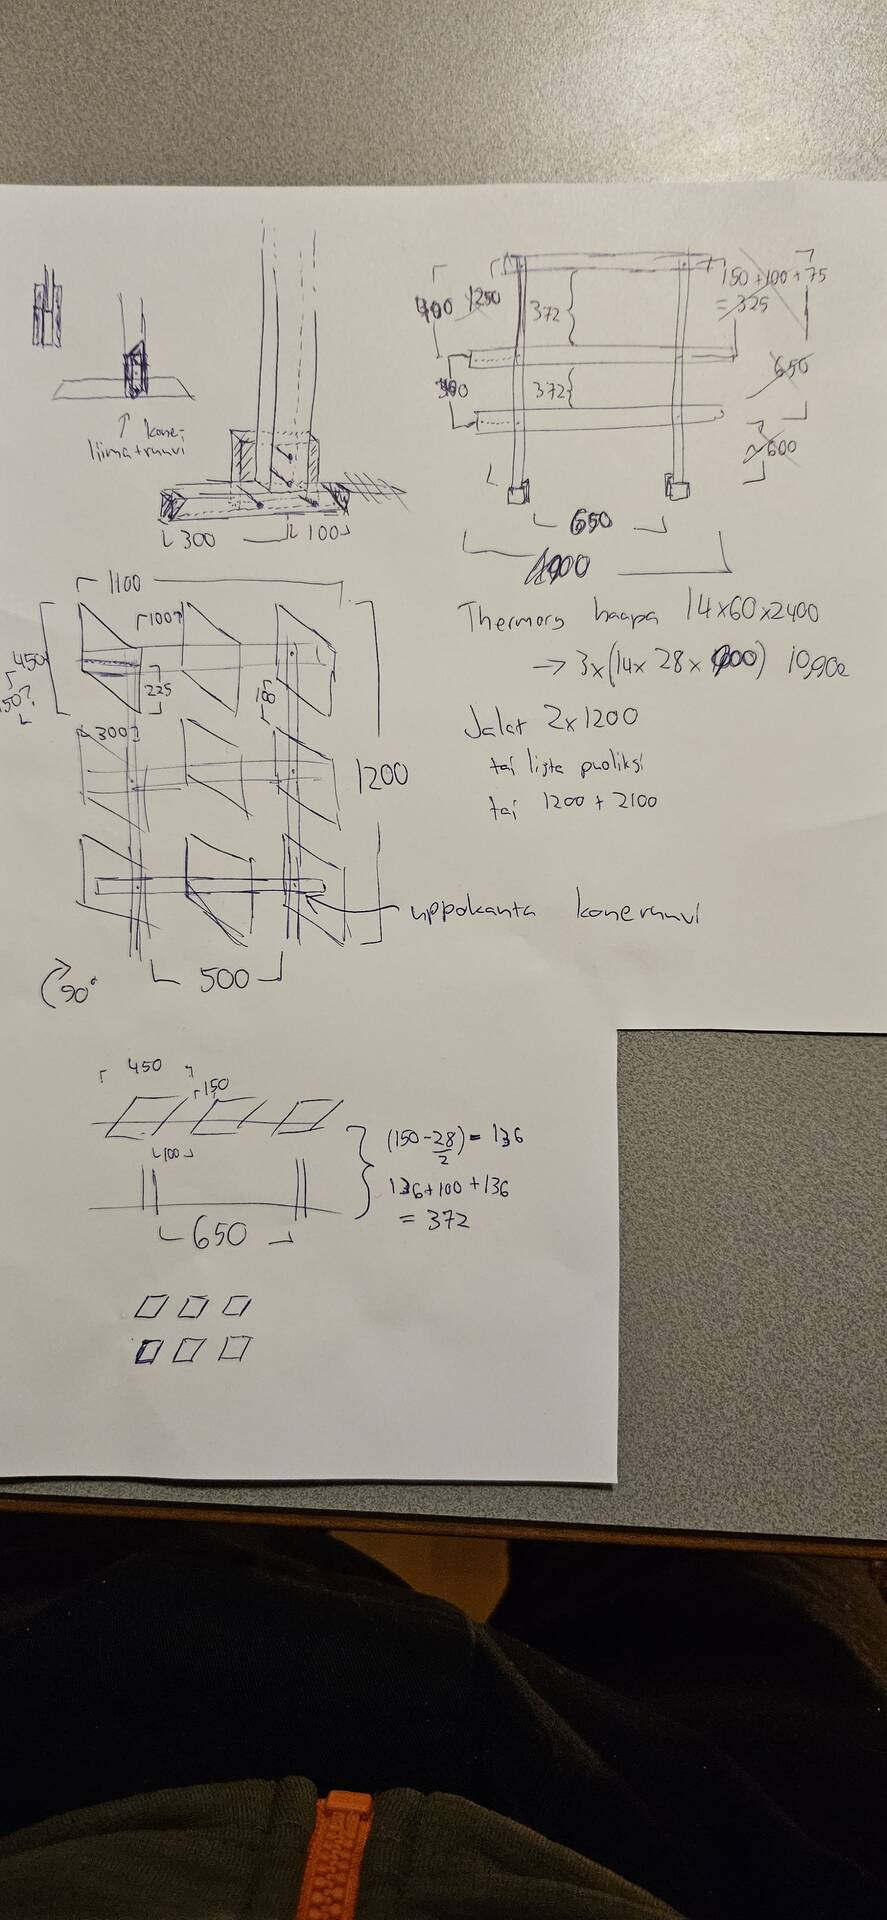 ↑ kone,
liima+ruuvi
300
100
372
150 + 100 + 75
= 325
650
372
600
650
Thermory haapa 14x60x2400
→ 3x(14x 28x 900)
Jalat 2x1200
tai lista puoliksi
tai 1200 + 2100
1100
100?
450
225
150?
300
1200
uppokanta koneruuvi
500
90°
450
150
100
(150-28/2) = 136
136+100+136
= 372
650